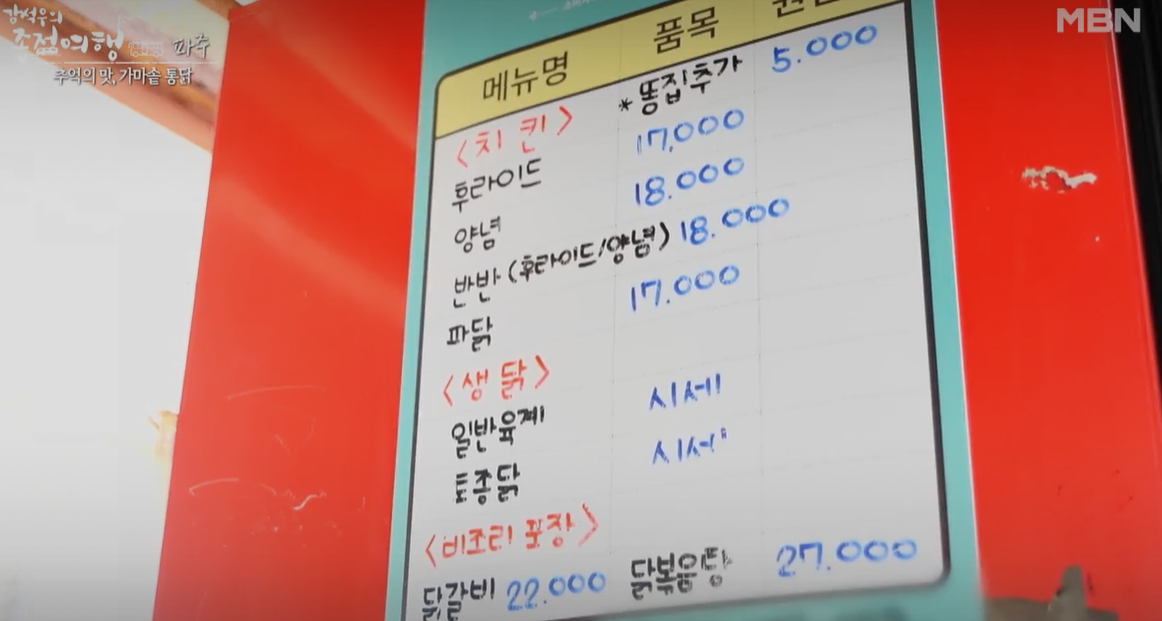 강석우의
종점여행 파주
추억의 맛, 가마솥 통닭
MBN
메뉴명 품목
*똥집추가 5.000
<치킨>
후라이드 17,000
양념 18.000
반반 (후라이드/양념) 18.000
파닭 17.000
<생닭>
일반육계 시세
토종닭 시세
<비조리 포장>
닭갈비 22.000 닭볶음탕 27.000